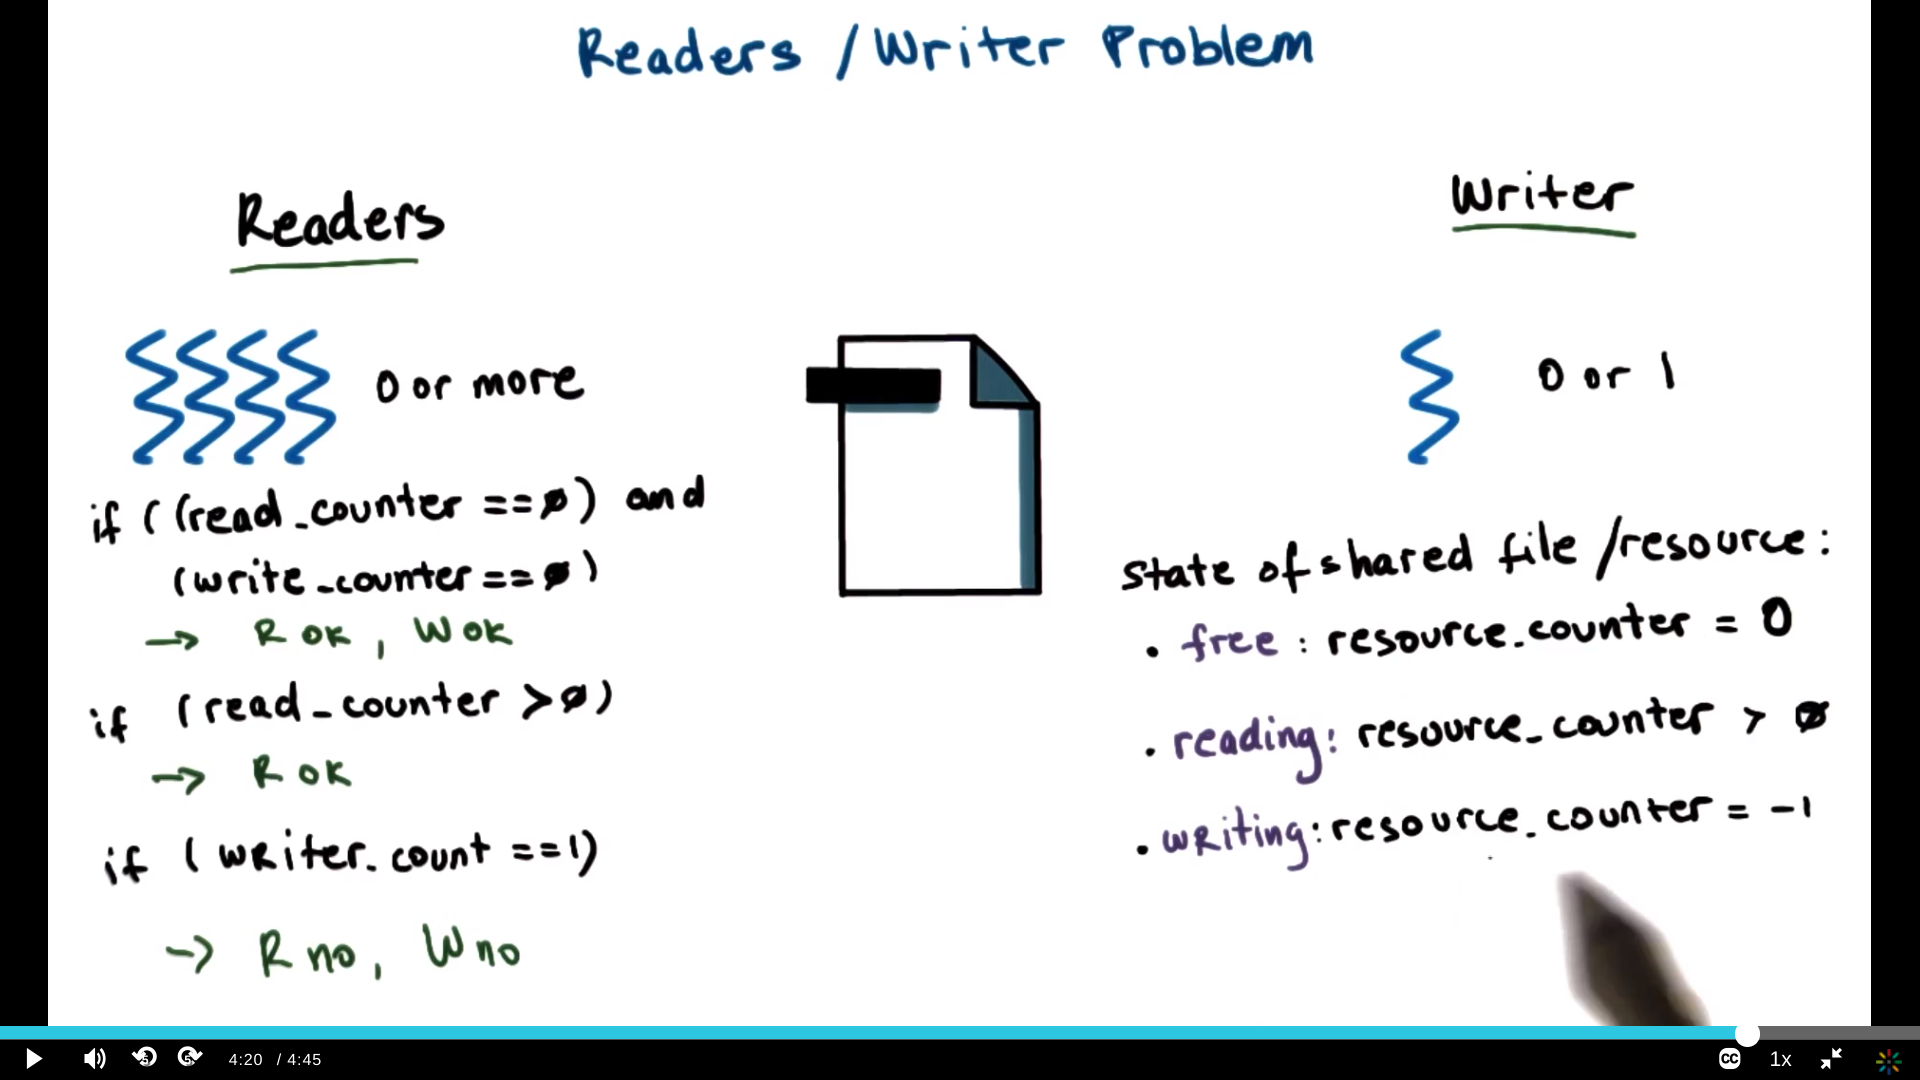 Readers / Writer Problem
Readers
0 or more
if ((read_counter == 0) and
(write_counter == 0)
→ R OK, W OK
if (read_counter > 0)
→ R OK
if (writer_count == 1)
→ R no, W no
Writer
0 or 1
state of shared file/resource:
• free: resource_counter = 0
• reading: resource_counter > 0
• writing: resource_counter = -1
5
5
4:20 / 4:45
CC
1x